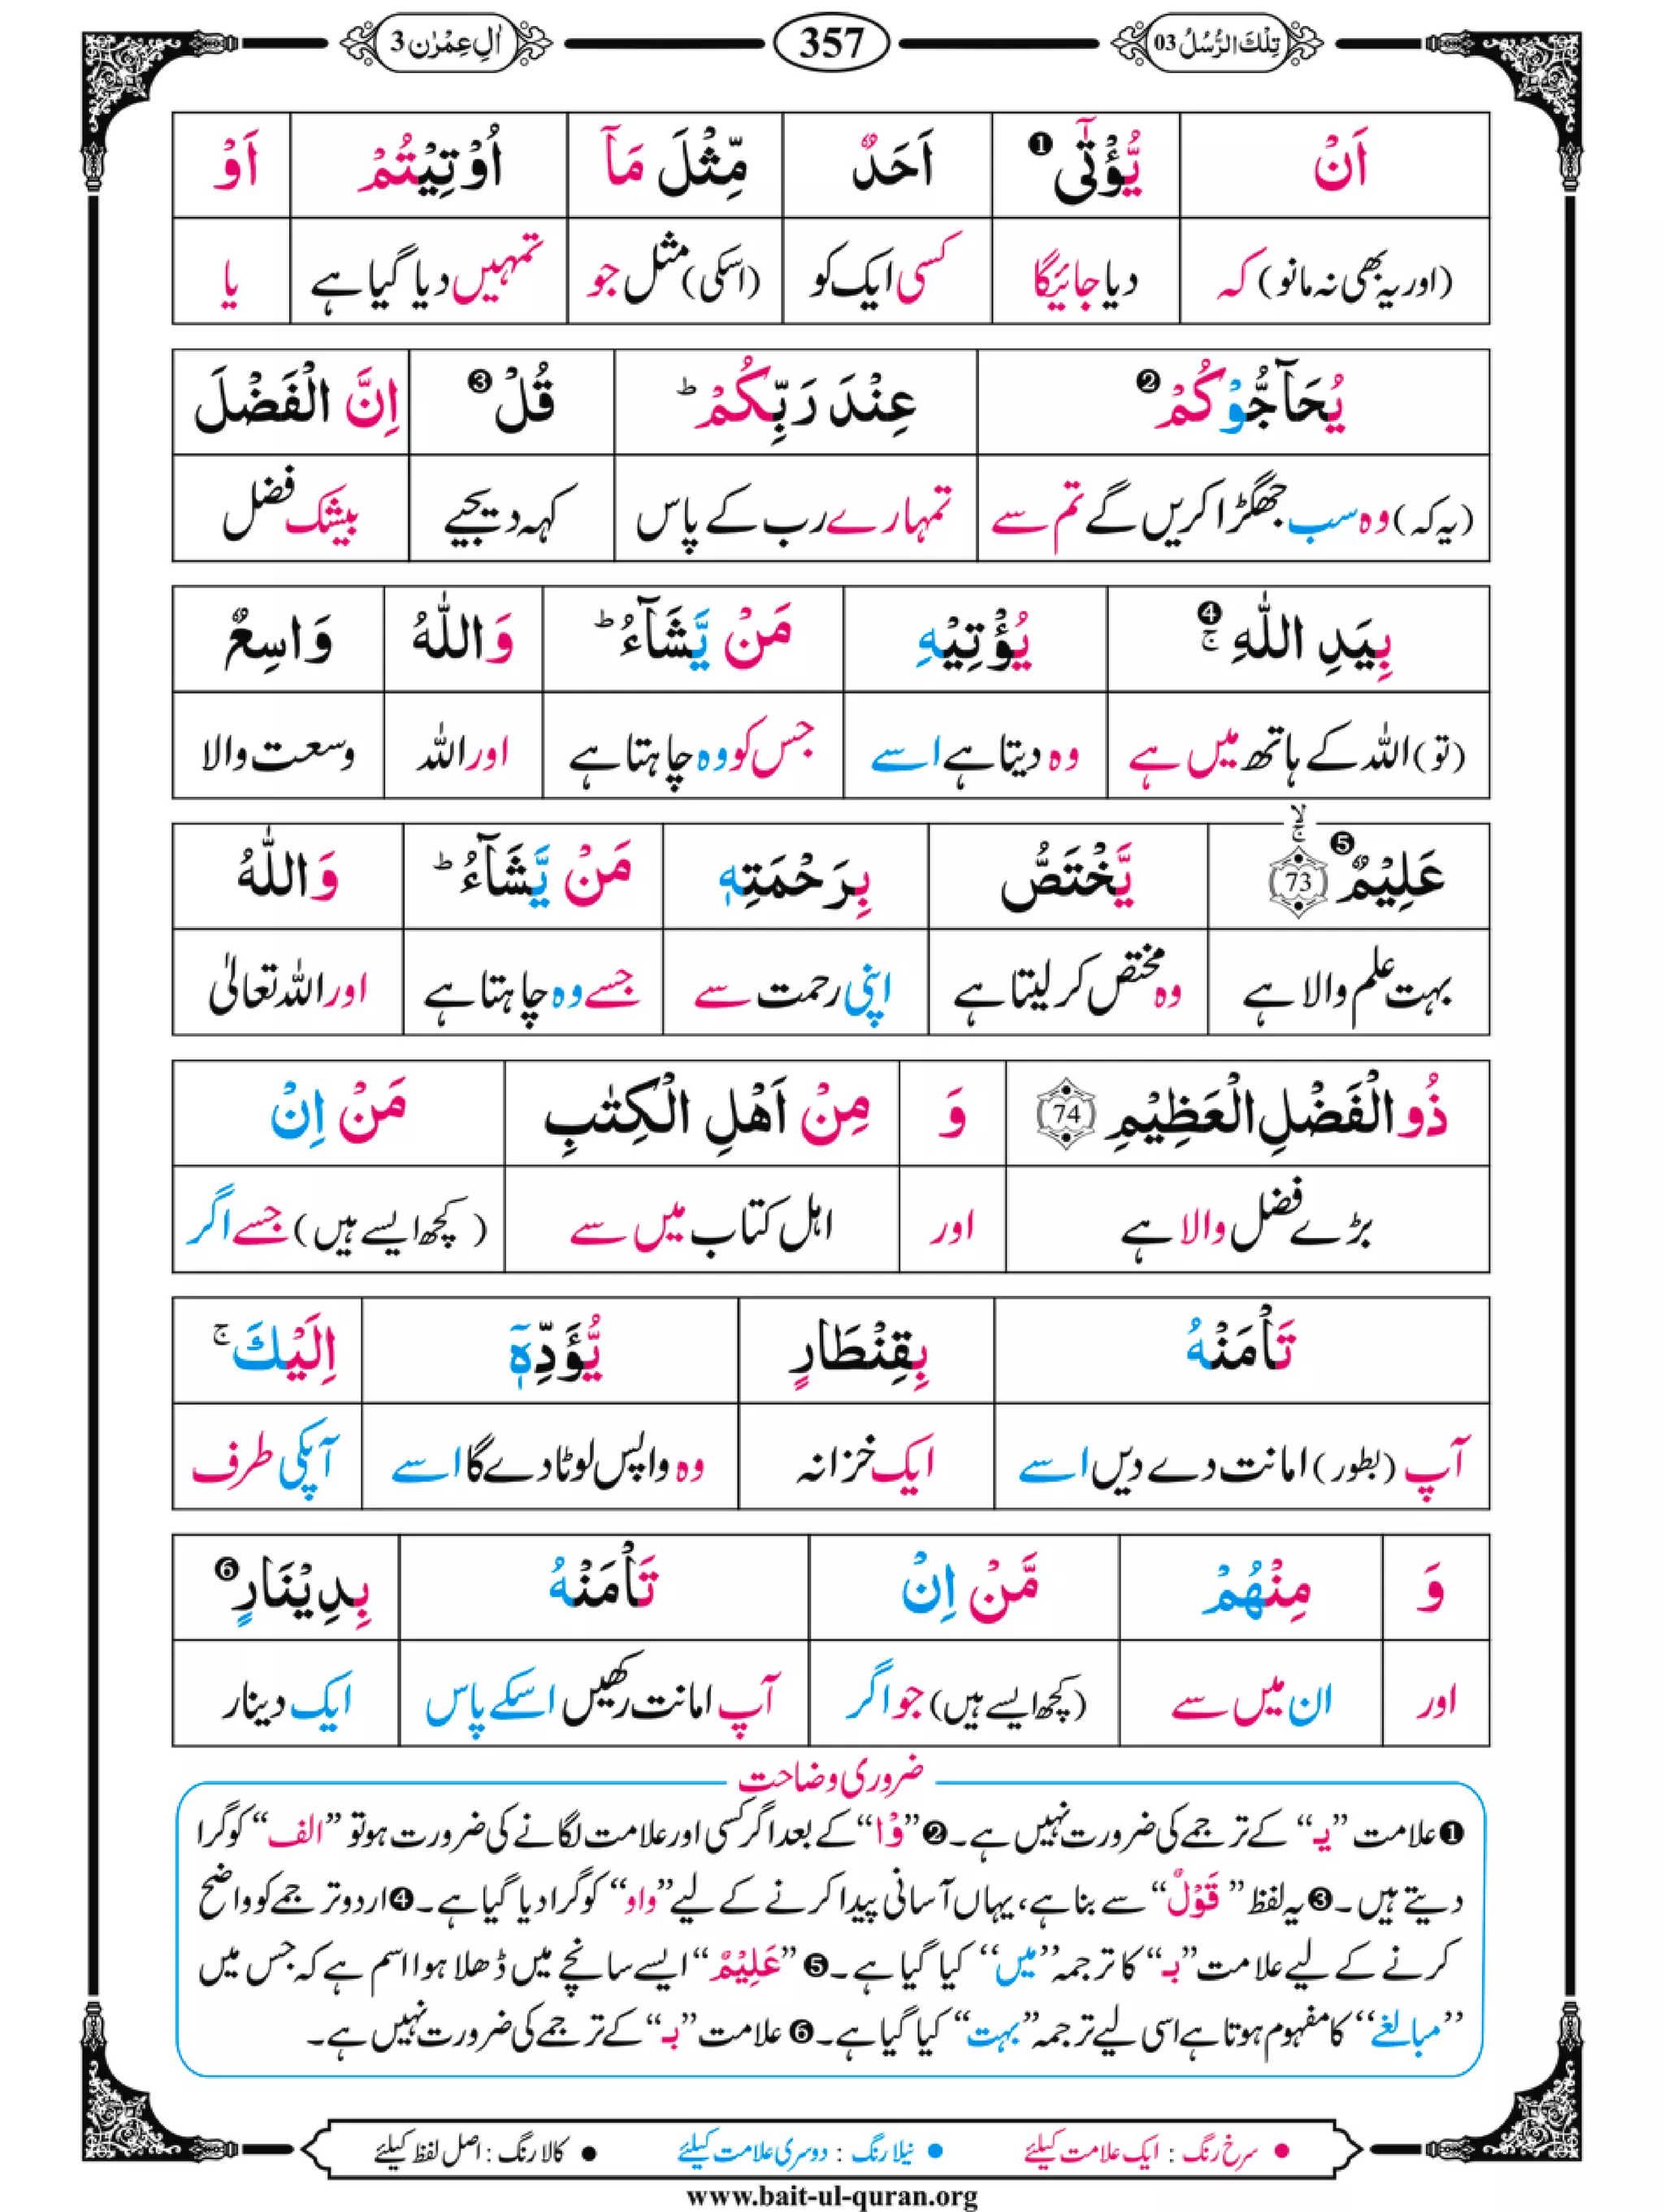 تِلْكَ الرُّسُلُ 03 357 اٰلِ عِمْرٰن 3
اَنْ يُّؤْتٰۤى ❶ اَحَدٌ مِّثْلَ مَاۤ اُوْتِيْتُمْ اَوْ
(اور یہ بھی نہ مانو) کہ دیا جائیگا کسی ایک کو (اسکی) مثل جو تمہیں دیا گیا ہے یا
يُحَآجُّوْكُمْ ❷ عِنْدَ رَبِّكُمْ ؕ قُلْ ❸ اِنَّ الْفَضْلَ
(یہ کہ) وہ سب جھگڑا کریں گے تم سے تمہارے رب کے پاس کہہ دیجیے بیشک فضل
بِيَدِ اللّٰهِ ❹ ۚ يُؤْتِيْهِ مَنْ يَّشَآءُ ؕ وَاللّٰهُ وَاسِعٌ
(تو) اللہ کے ہاتھ میں ہے وہ دیتا ہے اسے جس کو وہ چاہتا ہے اور اللہ وسعت والا
عَلِيْمٌ ❺ 73 ۙۚ يَّخْتَصُّ بِرَحْمَتِهٖ مَنْ يَّشَآءُ ؕ وَاللّٰهُ
بہت علم والا ہے وہ مختص کر لیتا ہے اپنی رحمت سے جسے وہ چاہتا ہے اور اللہ تعالیٰ
ذُو الْفَضْلِ الْعَظِيْمِ 74 وَ مِنْ اَهْلِ الْكِتٰبِ مَنْ اِنْ
بڑے فضل والا ہے اور اہل کتاب میں سے (کچھ ایسے ہیں) جسے اگر
تَاْمَنْهُ بِقِنْطَارٍ يُّؤَدِّهٖۤ اِلَيْكَ ۚ
آپ (بطور) امانت دے دیں اسے ایک خزانہ وہ واپس لوٹا دے گا اسے آپکی طرف
وَ مِنْهُمْ مَّنْ اِنْ تَاْمَنْهُ بِدِيْنَارٍ ❻
اور ان میں سے (کچھ ایسے ہیں) جو اگر آپ امانت رکھیں اسکے پاس ایک دینار
ضروری وضاحت
❶ علامت ”یـ“ کے ترجمے کی ضرورت نہیں ہے۔ ❷ ”وْا“ کے بعد اگر کسی اور علامت لگانے کی ضرورت ہو تو ”الف“ کو گرا
دیتے ہیں۔ ❸ یہ لفظ ”قَوْلٌ“ سے بنا ہے، یہاں آسانی پیدا کرنے کے لیے ”واو“ کو گرا دیا گیا ہے۔ ❹ اردو ترجمے کو واضح
کرنے کے لیے علامت ”بـ“ کا ترجمہ ”میں“ کیا گیا ہے۔ ❺ ”عَلِيْمٌ“ ایسے سانچے میں ڈھلا ہوا اسم ہے کہ جس میں
”مبالغے“ کا مفہوم ہوتا ہے اسی لیے ترجمہ ”بہت“ کیا گیا ہے۔ ❻ علامت ”بـ“ کے ترجمے کی ضرورت نہیں ہے۔
● سرخ رنگ : ایک علامت کیلئے ● نیلا رنگ : دوسری علامت کیلئے ● کالا رنگ : اصل لفظ کیلئے
www.bait-ul-quran.org